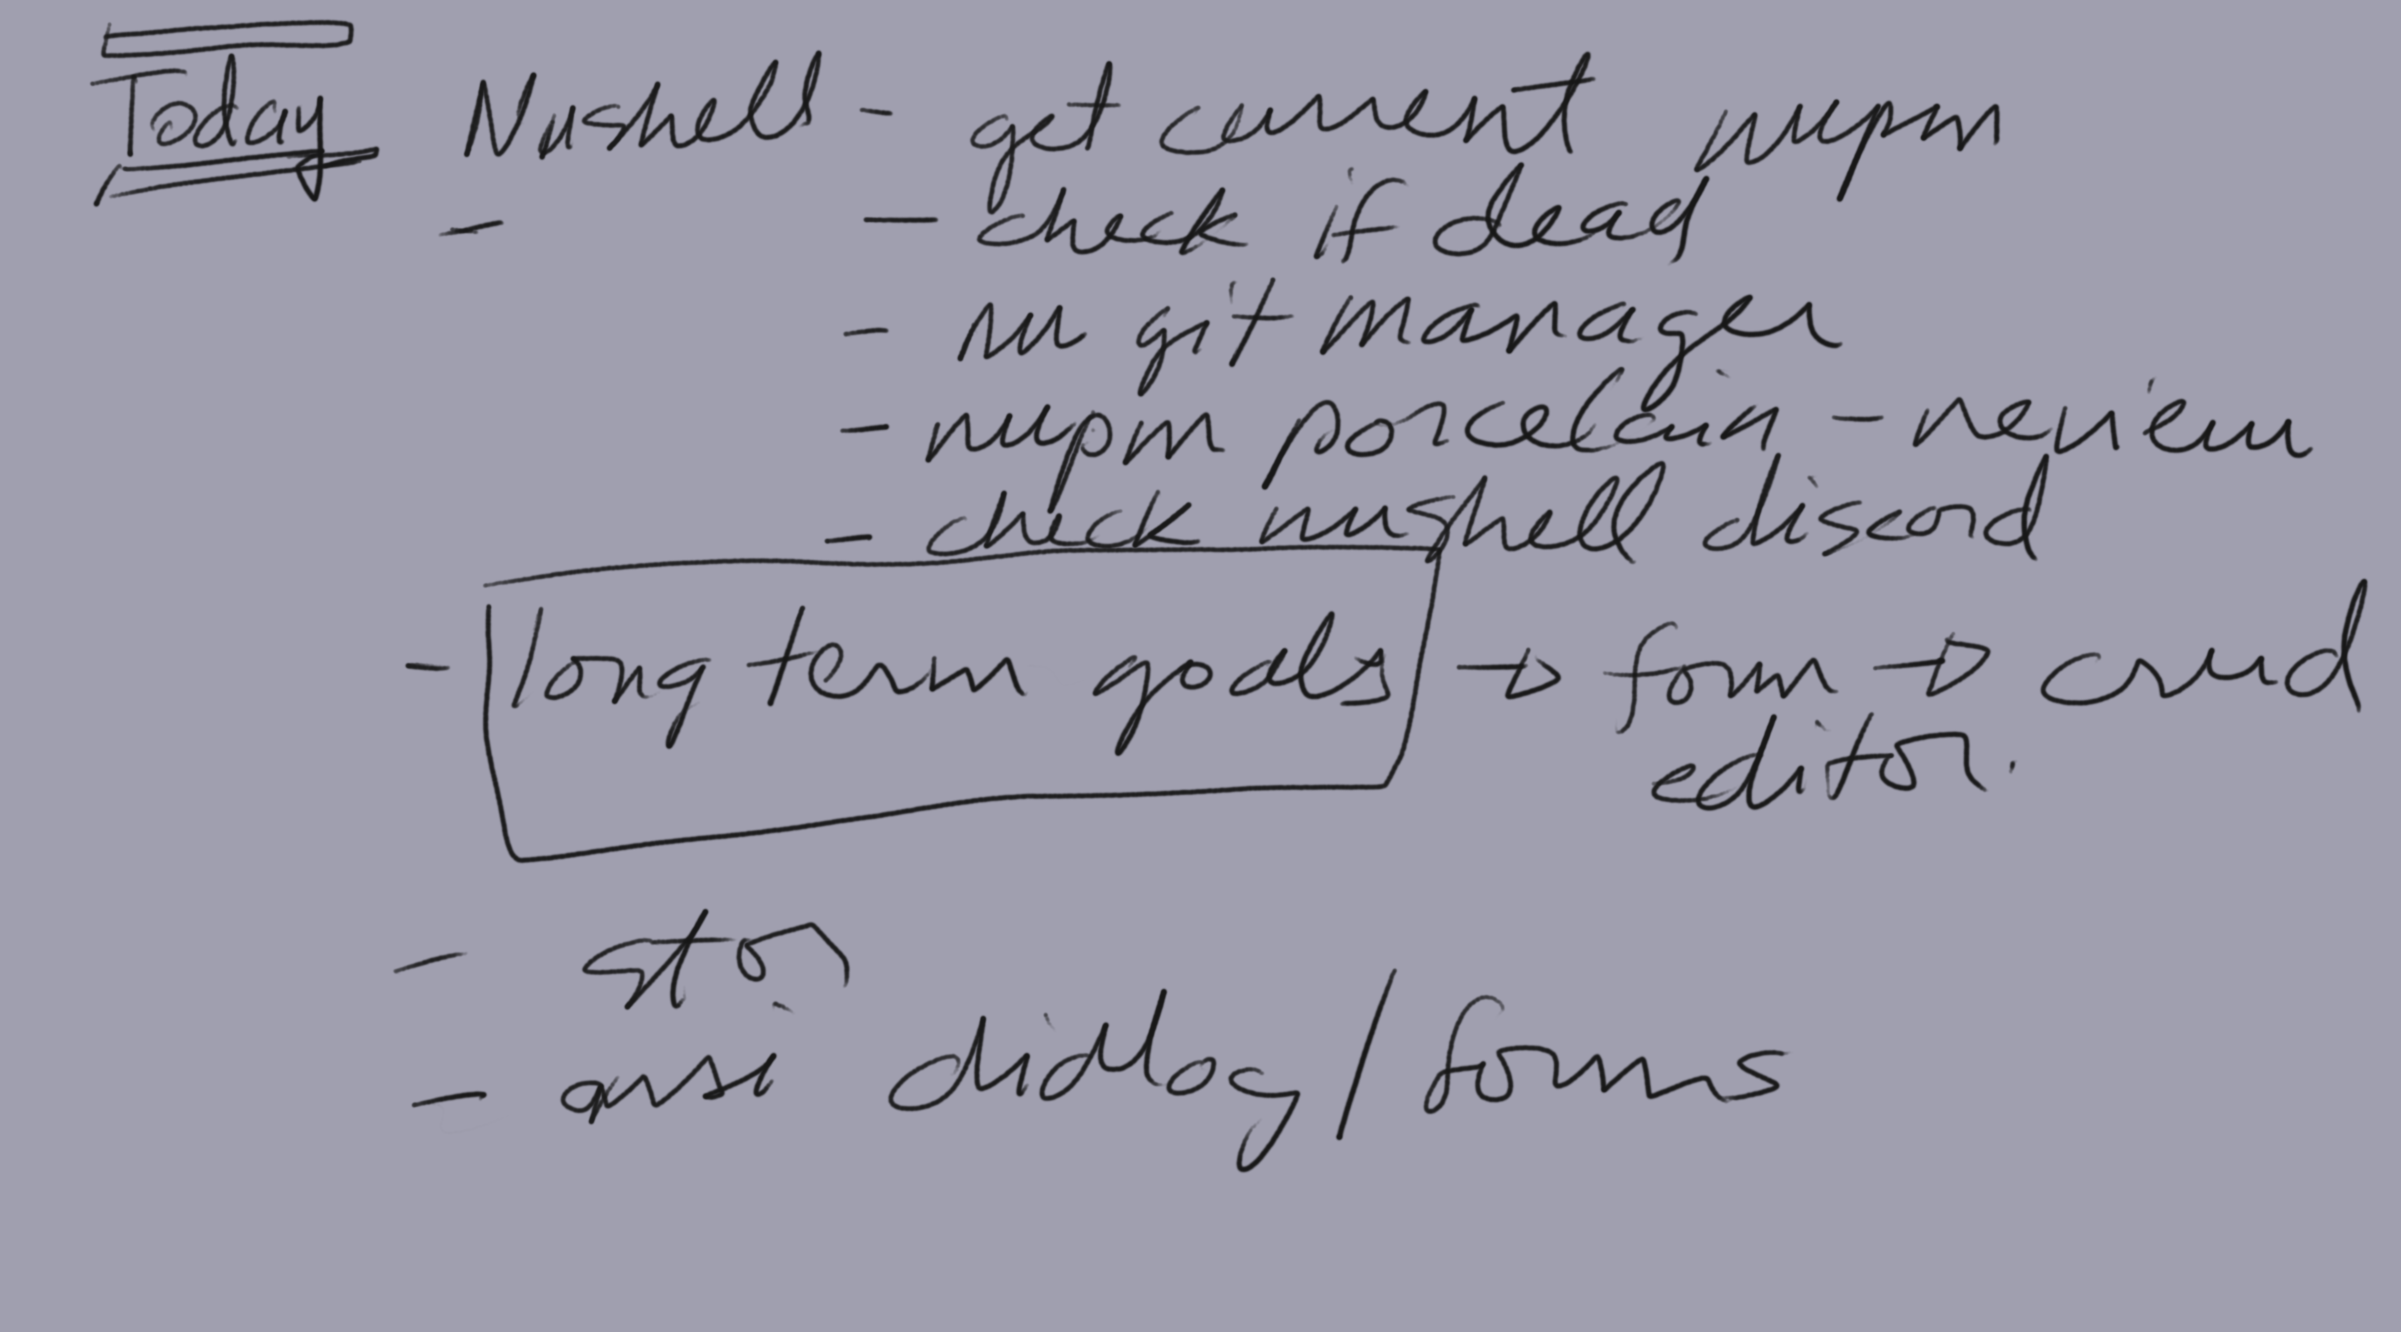 Today Nushell - get current nupm
- - check if dead
- nu git manager
- nupm porcelain - review
- check nushell discord
- long term goals → form → crud
editor.
- stor
- ansi dialog/forms